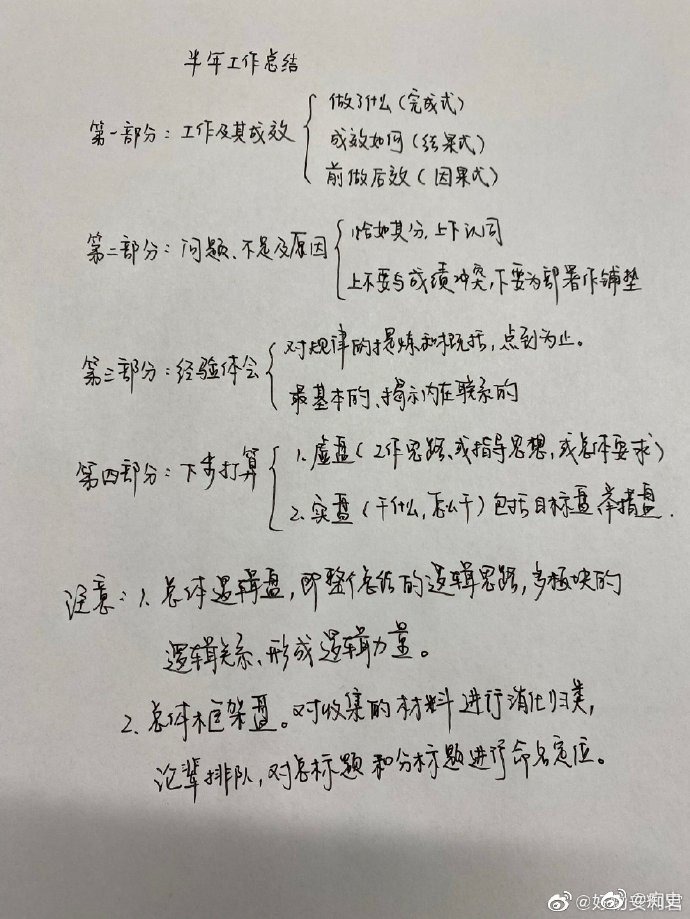 半年工作总结
第一部分：工作及其成效
做了什么（完成式）
成效如何（结果式）
前做后效（因果式）
第二部分：问题、不足及原因
恰如其分，上下认同
上不要与成绩冲突，下要为部署作铺垫
第三部分：经验体会
对规律的提炼和概括，点到为止。
最基本的、揭示内在联系的
第四部分：下步打算
1、虚盘（工作思路、或指导思想，或总体要求）
2、实盘（干什么，怎么干）包括目标盘 举措盘.
注意：1、总体逻辑盘，即整个总结的逻辑思路，多板块的
逻辑关系、形成逻辑力量。
2、总体框架盘。对收集的材料进行消化归类，
论辈排队，对总标题和分标题进行命名定位。